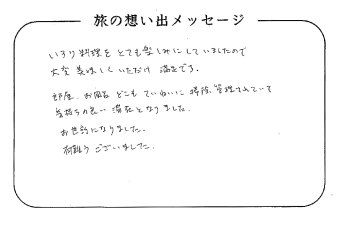 旅の想い出メッセージ
いろり料理をとても楽しみにしていましたので
大変美味しくいただけ 満足です。
部屋、お風呂 どこも ていねいに 掃除、管理されていて
気持ちの良い 滞在となりました。
お世話になりました。
有難う ございました。